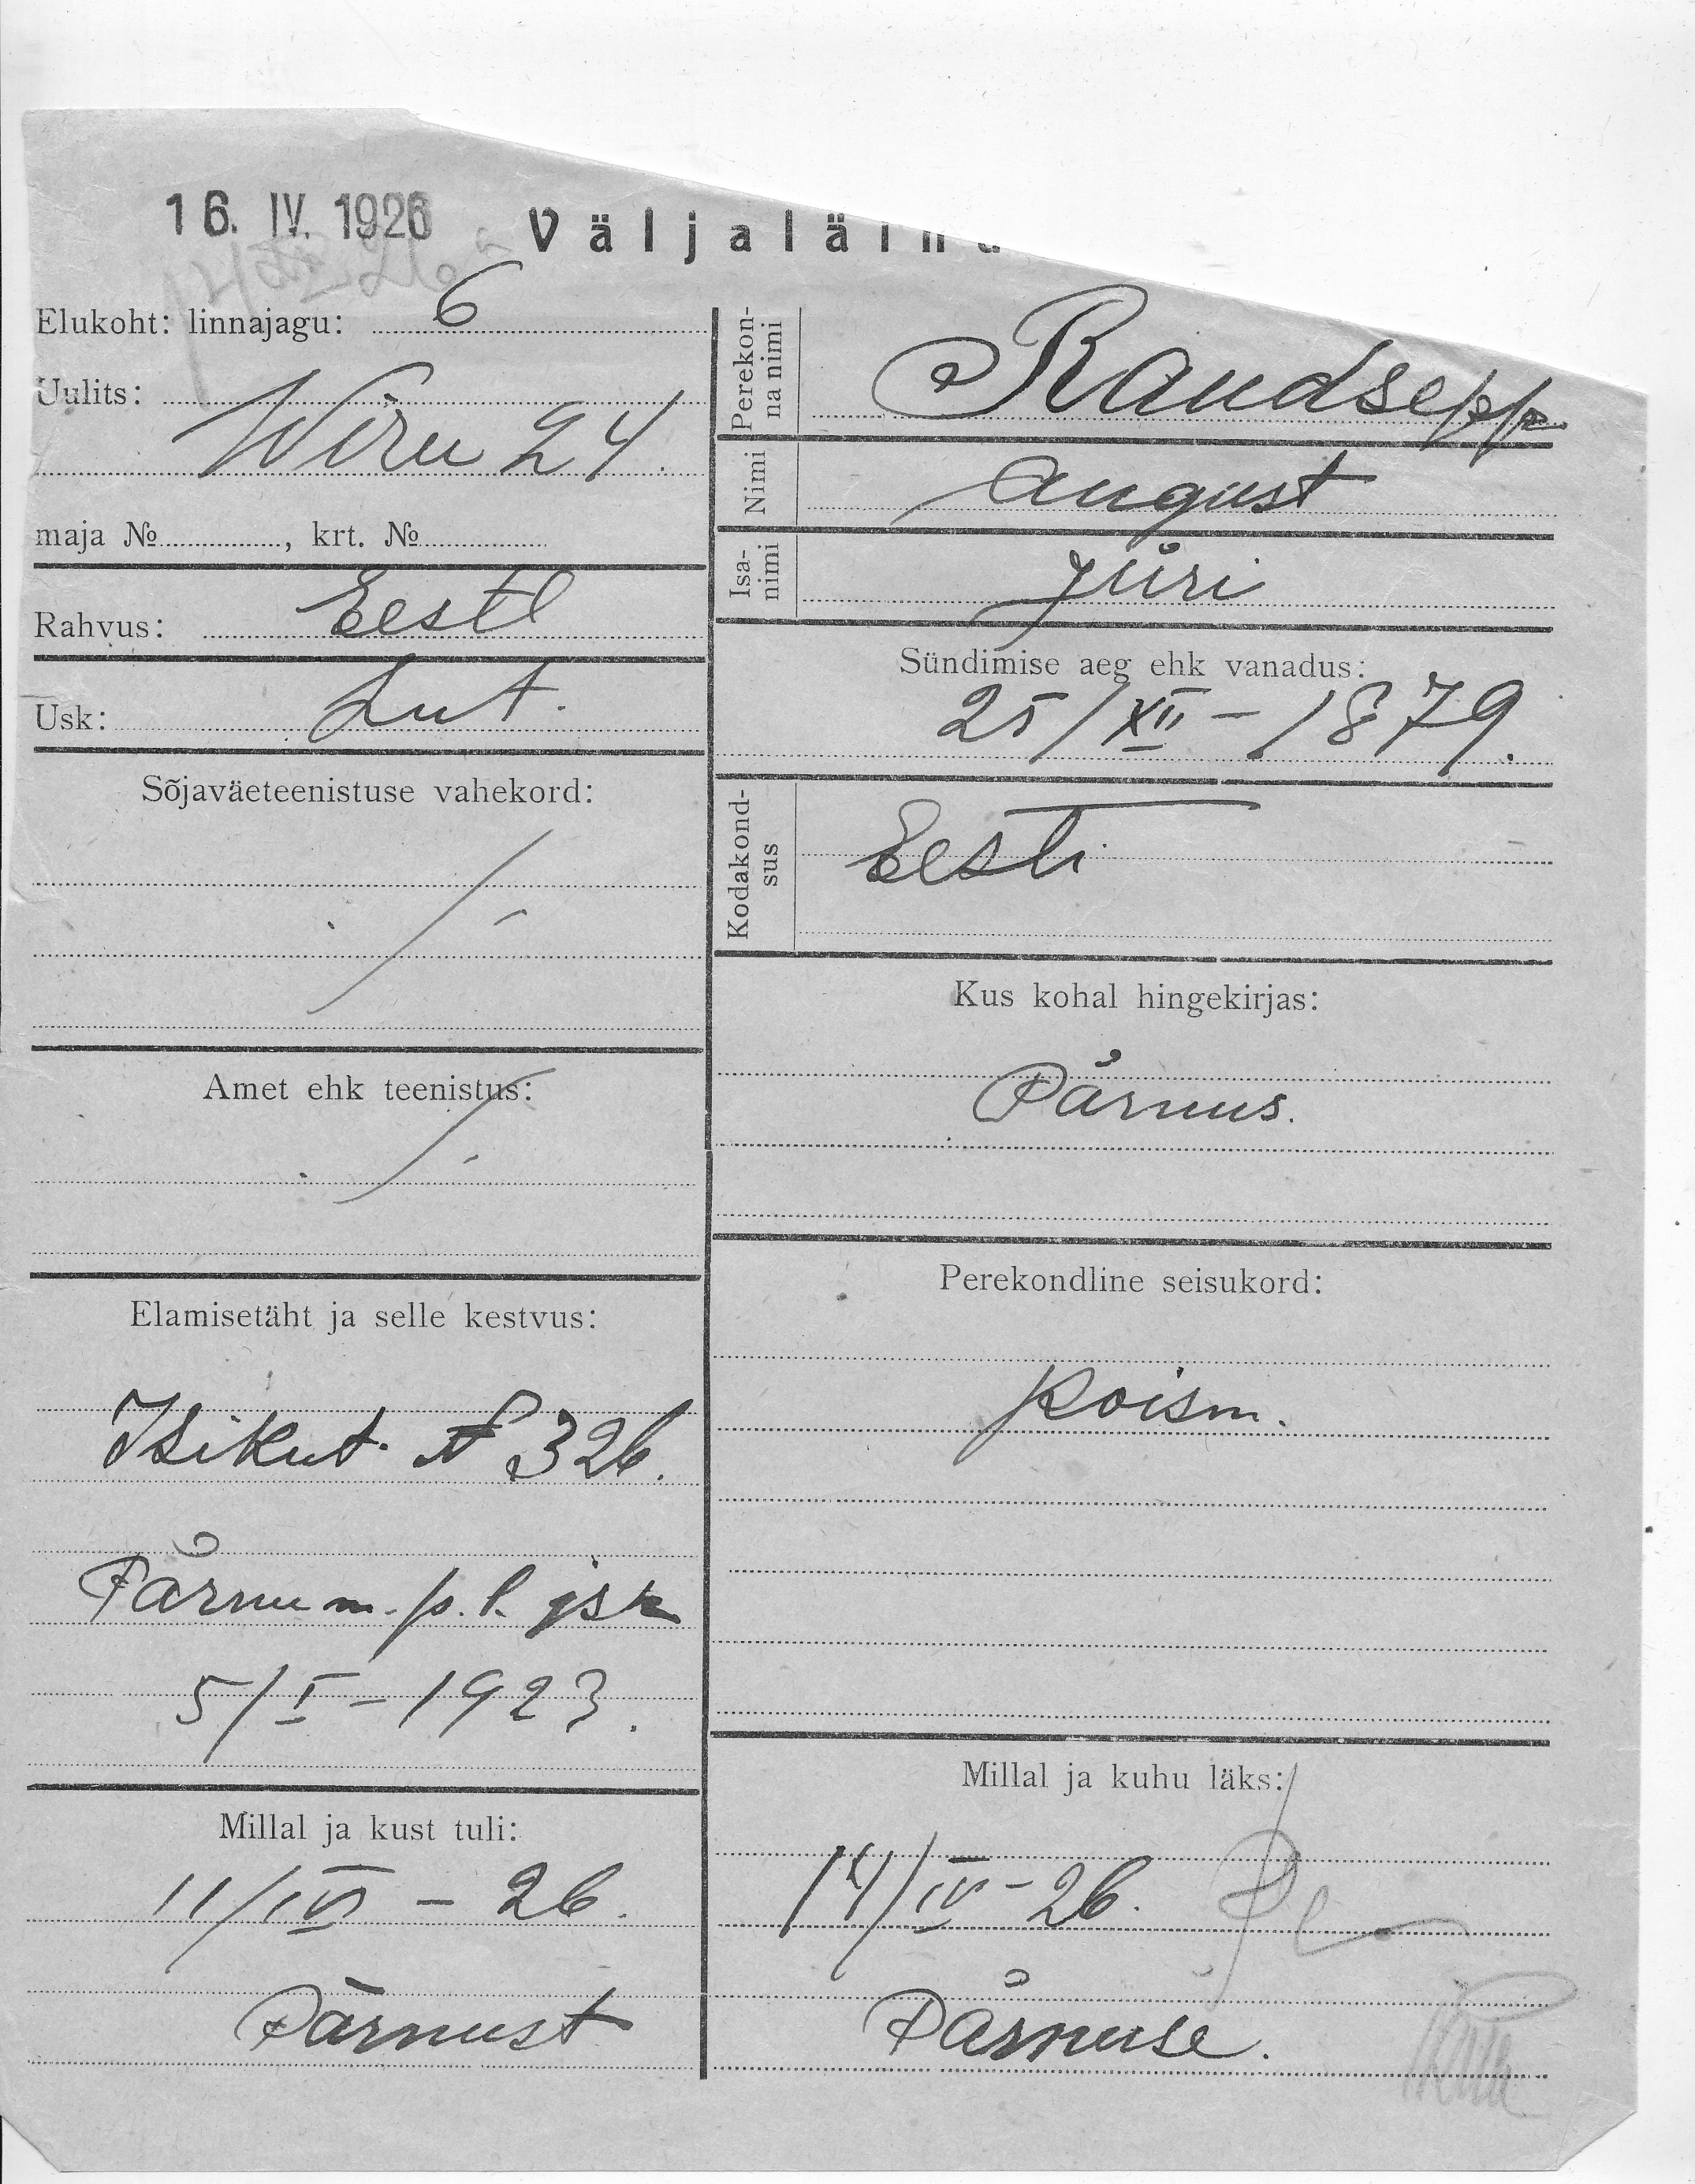 16. IV. 1926
Väljaläinu
Elukoht: linnajagu: 6
Uulits:
Wiru 24.
maja № , krt. №
Rahvus: Eestl
Usk: Lut.
Sõjaväeteenistuse vahekord:
Amet ehk teenistus:
Elamisetäht ja selle kestvus:
Isikut. № 326.
Pärnu m. p. l. jsk
5/I – 1923.
Millal ja kust tuli:
11/IV – 26.
Pärnust
Perekonna nimi Raudsepp
Nimi August
Isanimi Jüri
Sündimise aeg ehk vanadus:
25/XII – 1879.
Kodakondsus Eesti
Kus kohal hingekirjas:
Pärnus.
Perekondline seisukord:
Poism.
Millal ja kuhu läks:
14/IV – 26.
Pärnuse.